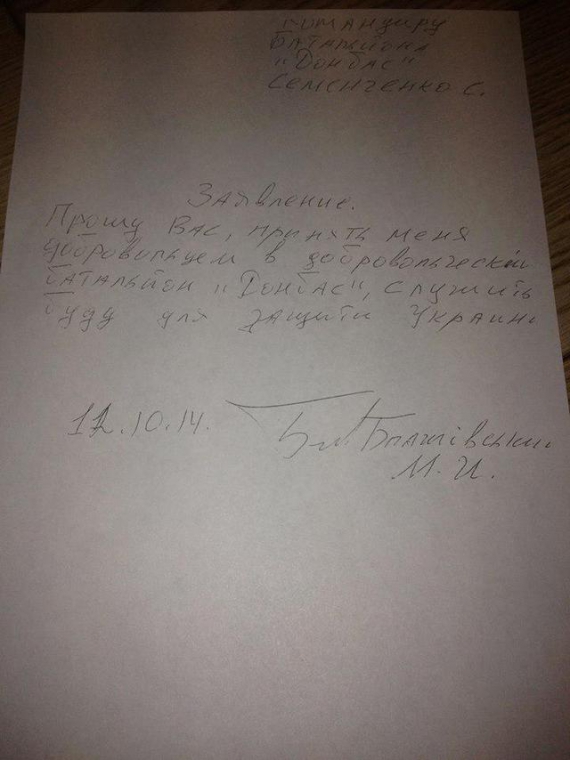 Командиру
Батальйона
"Донбас"
Семенченко С.
Заявление.
Прошу Вас, принять меня
добровольцем в добровольческий
батальйон "Донбас", служить
буду для защити Украини
12.10.14.
М. И.